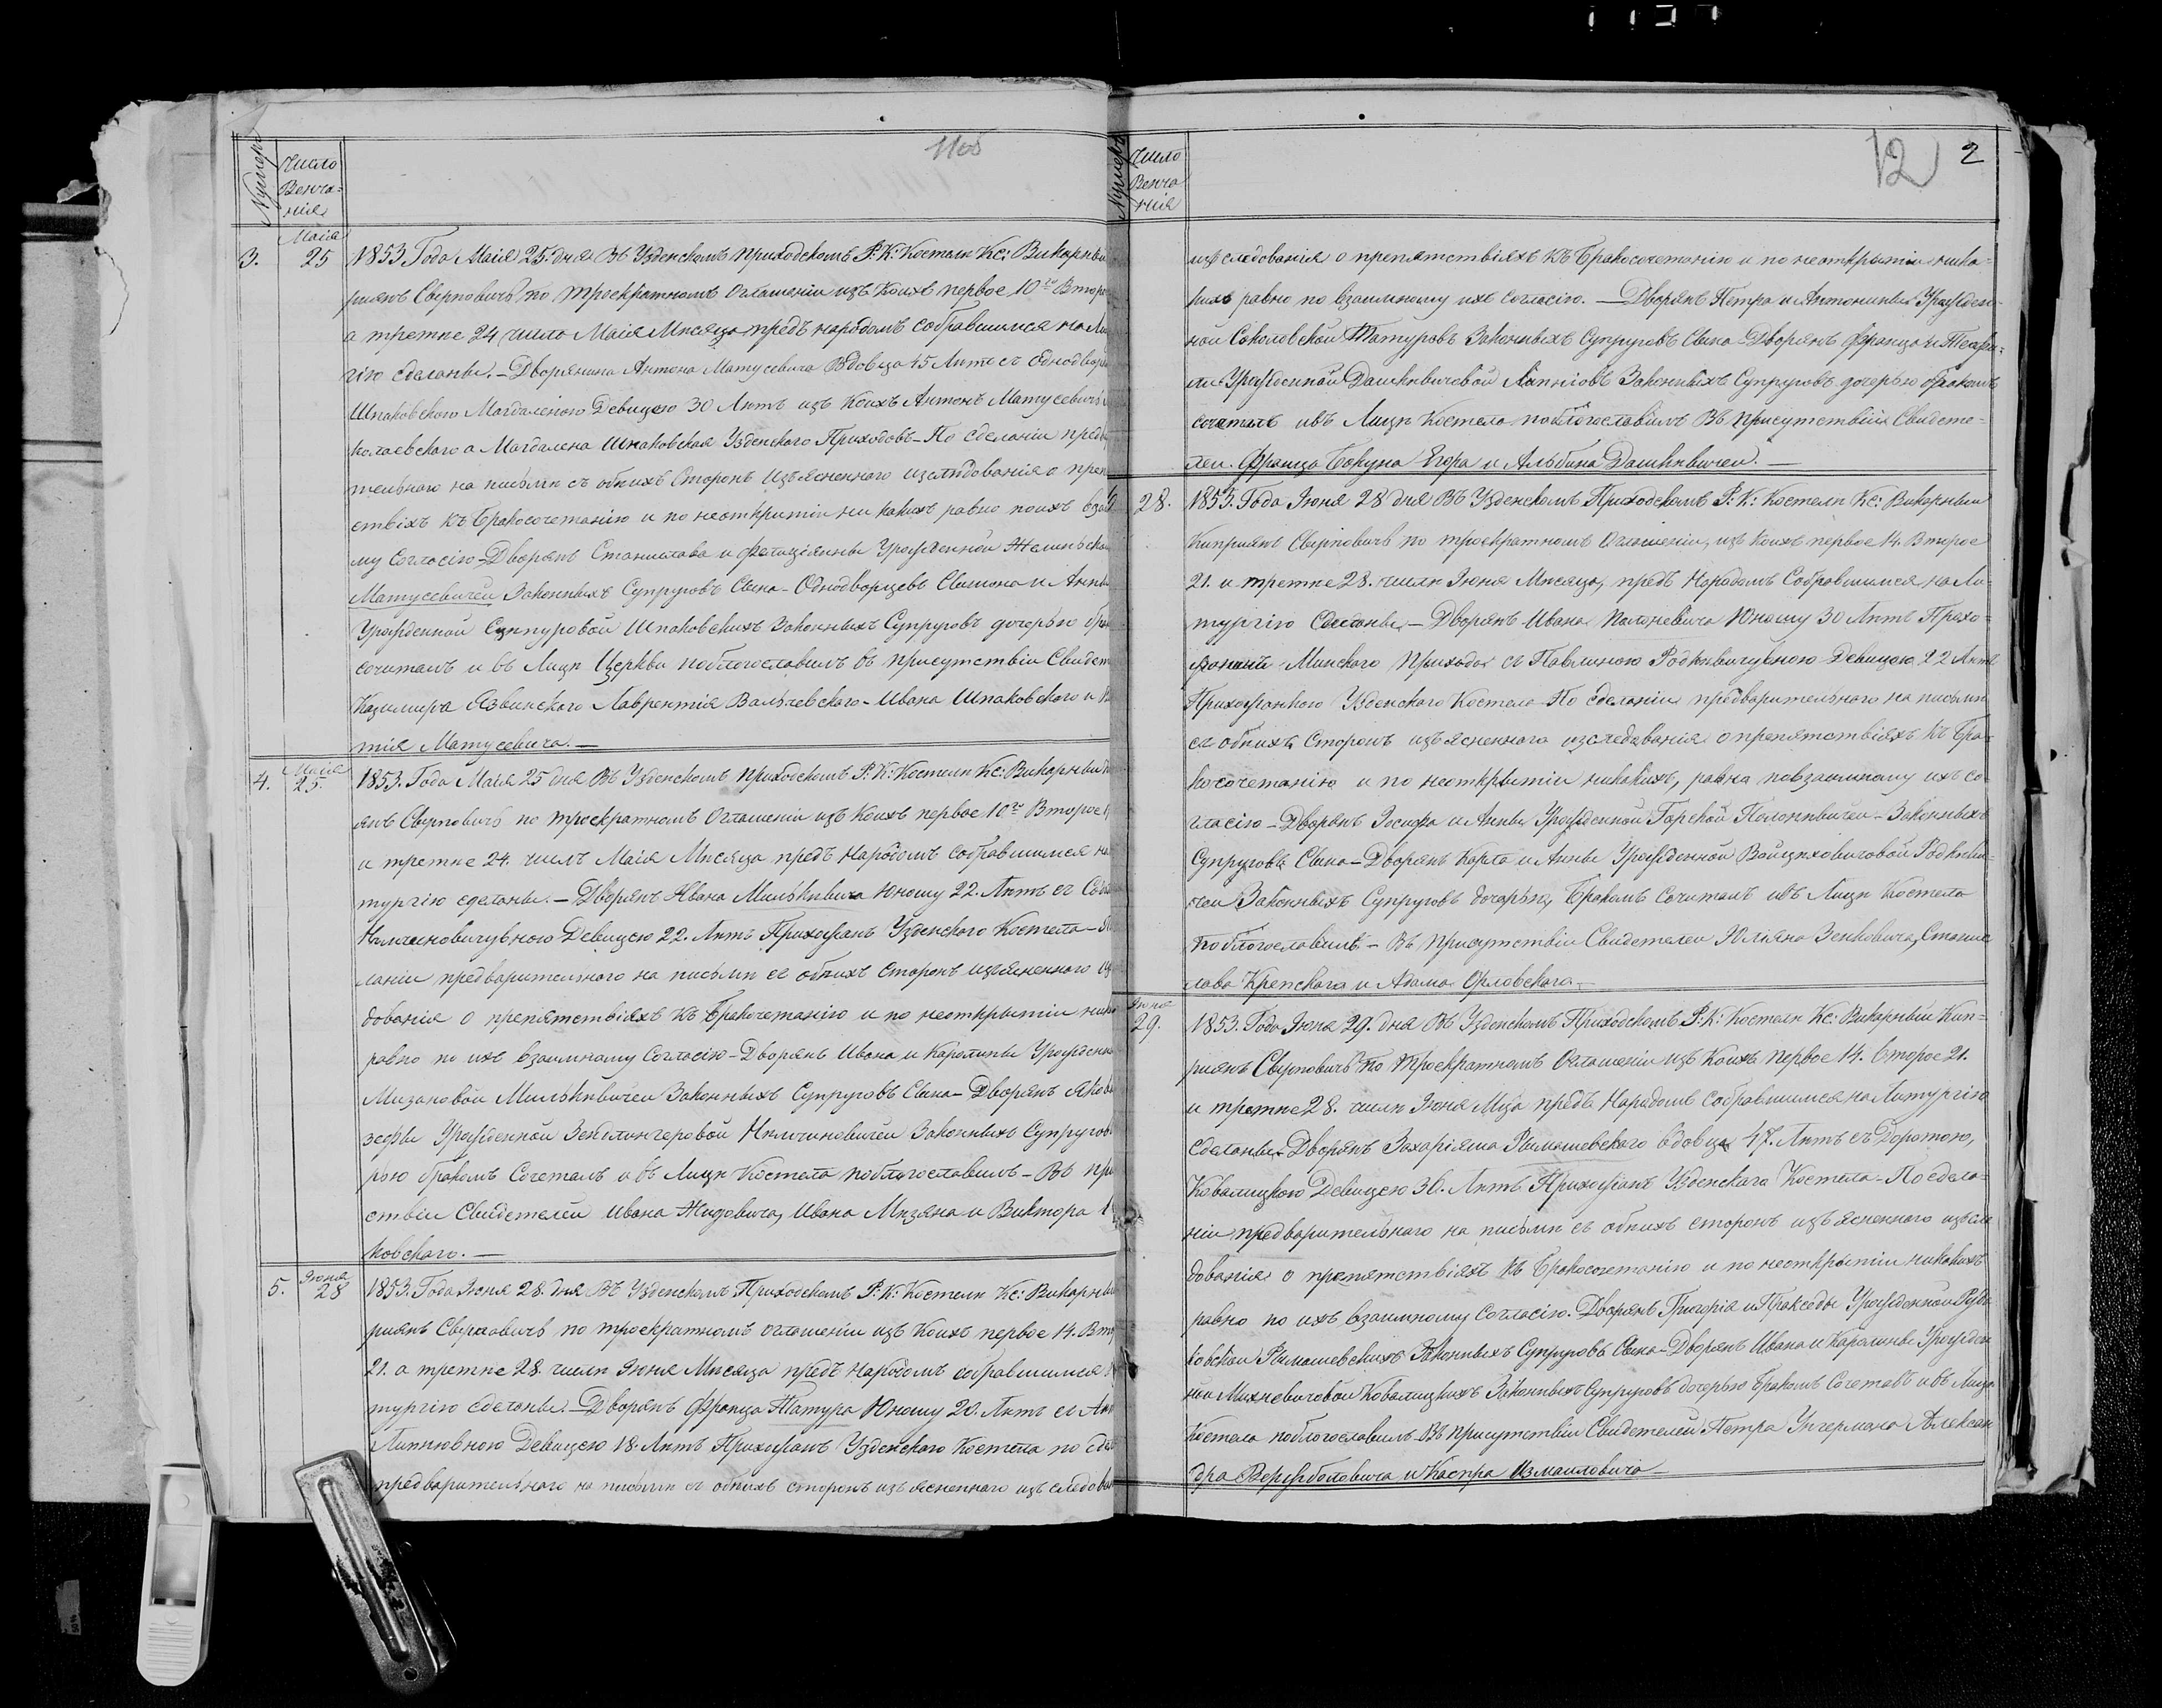 1165
Нумеръ
Число Венча=нія
3.
Маія 25
1853 Года Маія 25 дня Въ Узденскомъ Приходскомъ Р: К: Костелѣ Кс: Викарный
ріянъ Свирповичъ по троекратномъ Оглашеніи изъ Коихъ первое 10го
а третіе 24 число Маія Мѣсяца предъ народомъ собравшимся на
гію сдѣланы. — Дворянина Антона Матусевича Вдовца 45 Лѣтъ съ
Шпаковскою Магдаленою Девицею 30 Лѣтъ изъ Коихъ Антонъ Матусевичъ
колаевского а Магдалена Шпаковская Узденского Приходовъ — По сделаніи
тельного на письмѣ съ обѣихъ Сторонъ Изъясненного изслѣдованія о
ствіхъ къ Бракосочетанію и по неоткритіи ни какихъ равно поихъ
му Согласію — Дворянъ Станислава и Фелиціянны Урожденной
Матусевичей Законныхъ Супруговъ Сына — Однодворцевъ Симона и Анны
Урожденной Шпаковскихъ Законныхъ Супруговъ дочерью
сочиталъ и въ Лицѣ Церкви поблогославилъ въ присутствіи
Казимира Язвинского Лаврентія Валъчевского — Ивана Шпаковского и
тія Матусевича. —
4.
Маія 25.
1853. Года Маія 25 дня Въ Узденскомъ Приходскомъ Р: К: Костелѣ Кс: Викарный
янъ Свирповичъ по троекратномъ Оглашеніи изъ Коихъ первое 10го Второе
и третіе 24. числъ Маія Мѣсяца предъ Народомъ собравшимся на
тургію сделаны. — Дворянъ Ивана Милькѣвича Юношу 22. Лѣтъ съ
Девицею 22. Лѣтъ Прихожанъ Узденского Костела —
ланіи предварительного на письмѣ съ обѣихъ сторонъ изъясненного
дованія о препятствіяхъ къ Бракочетанію и по неоткрытіи
равно по ихъ взаимному Согласію — Дворянъ Ивана и Каролины
Мизановой Милькѣвичей Законныхъ Супруговъ Сына — Дворянъ
зефы Урожденной Законныхъ
рью бракомъ Сочеталъ и въ Лицѣ Костела поблогославилъ — Въ
ствіи Свидетелей Ивана Жидовича, Ивана Мизяна и Виктора
ковского. —
5.
Іюня 28
1853. Года Іюня 28. дня Въ Узденскомъ Приходскомъ Р: К: Костелѣ Кс: Викарный
ріянъ Свирповичъ по троекратномъ оглашеніи изъ Коихъ первое 14.
21. а третіе 28. числѣ Іюня Мѣсяца предъ Народомъ собравшимся
тургію сделаны. — Дворянъ Франца Татура Юношу 20. Лѣтъ съ
Девицею 18. Лѣтъ Прихожанъ Узденского Костела по
предварительного на письмѣ съ обѣихъ сторонъ изъясненного
12
2
Нумеръ
Число Венча нія
изъследованія о препятствіяхъ къ Бракосочетанію и по неоткрытіи ника=
кихъ равно по взаимному ихъ согласію. — Дворянъ Петра и Антонины Урожден=
ной Соколовской Татуровъ Законныхъ Супруговъ Сына — Дворянъ Франца и
Урожденной Дашкѣвичевой Законныхъ Супруговъ дочерью бракомъ
сочеталъ ивъ Лицѣ Костела поблогославилъ Въ присутствіи Свидете=
лей. Франца Бокуна Егора и Альбина Дашкѣвичей. —
28.
1853. Года Іюня 28 дня Въ Узденскомъ Приходскомъ Р: К: Костелѣ Кс: Викарный
Кипріянъ Свирповичъ по троекратномъ Оглашеніи, изъ Коихъ первое 14. Второе
21. и третіе 28. числѣ Іюня Мѣсяца, предъ Народомъ Собравшимся на Ли=
тургію — Дворянъ Ивана Юношу 30 Лѣтъ Прихо=
Минского Прихода съ Павлиною Родкѣвичувною Девицею 22 Лѣтъ
Узденского Костела — По сделаніи предварительного на письмѣ
съ обѣихъ Сторонъ изъясненного изследованія о препятствіяхъ къ Бра=
косочетанію и по неоткрытіи никакихъ, равна повзаимному ихъ со=
гласію — Дворянъ Іосифа и Анны Урожденной Горской — Законныхъ
Супруговъ Сына — Дворянъ Карла и Анны Урожденной Войцѣховичовой Родкѣви=
чей Законныхъ Супруговъ дочерью, Бракомъ Сочиталъ ивъ Лицѣ Костела
Поблогославилъ — Въ присутствіи Свидетелей Юліяна Зенковича, Станис
лава и Адама Орловского —
Іюня 29.
1853. Года Іюня 29. дня Въ Узденскомъ Приходскомъ Р: К: Костелѣ Кс: Викарный Кип=
ріянъ Свирповичъ по троекратномъ Оглашеніи изъ Коихъ первое 14. второе 21.
и третіе 28. числѣ Іюня Мца предъ Народомъ Собравшимся на Литургію
Сделаны — Дворянъ Захаріяша Рымашевского вдовца 47. Лѣтъ съ Доротою,
Ковалицкою Девицею 36. Лѣтъ Прихожанъ Узденскаго Костела — По сдела=
ніи предварительного на письмѣ съ обѣихъ сторонъ изъясненного изъслѣ
дованія о препятствіяхъ къ Бракосочетанію и по неоткрытіи никакихъ
равно по ихъ взаимному Согласію. Дворянъ Григорія и Пракседы Урожденной
Рымашевскихъ Законныхъ Супруговъ Сына — Дворянъ Ивана и Каралины Урожден
ной Михневичовой Ковалицкихъ Законныхъ Супруговъ дочерью Бракомъ Сочетавъ ивъ Лицѣ
Костела поблогославилъ — Въ присутствіи Свидетелей Петра Унгермана Алексан
дра Вержболовича и Каспра Измаиловича —